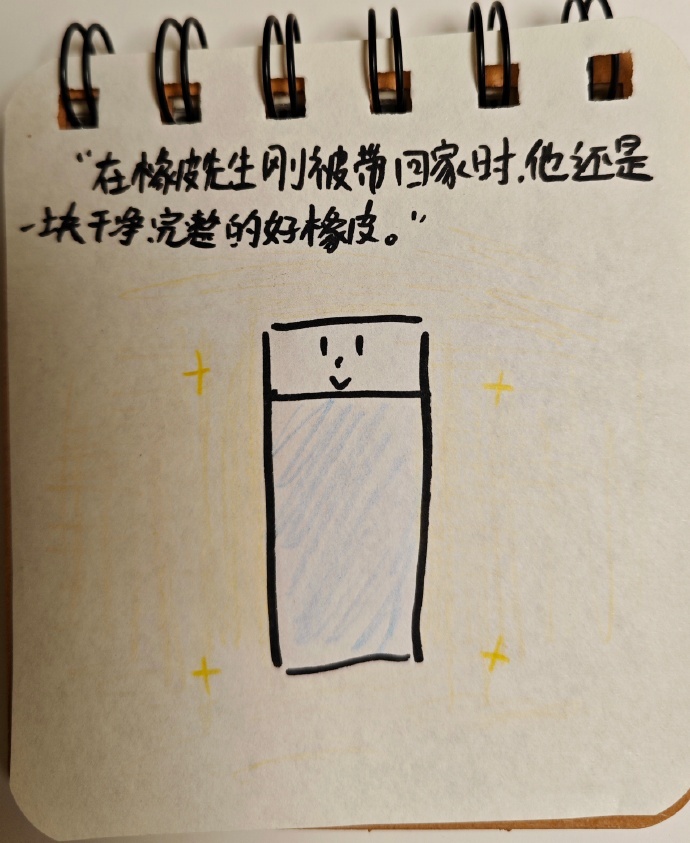 “在橡皮先生刚被带回家时.他还是
一块干净.完整的好橡皮。”